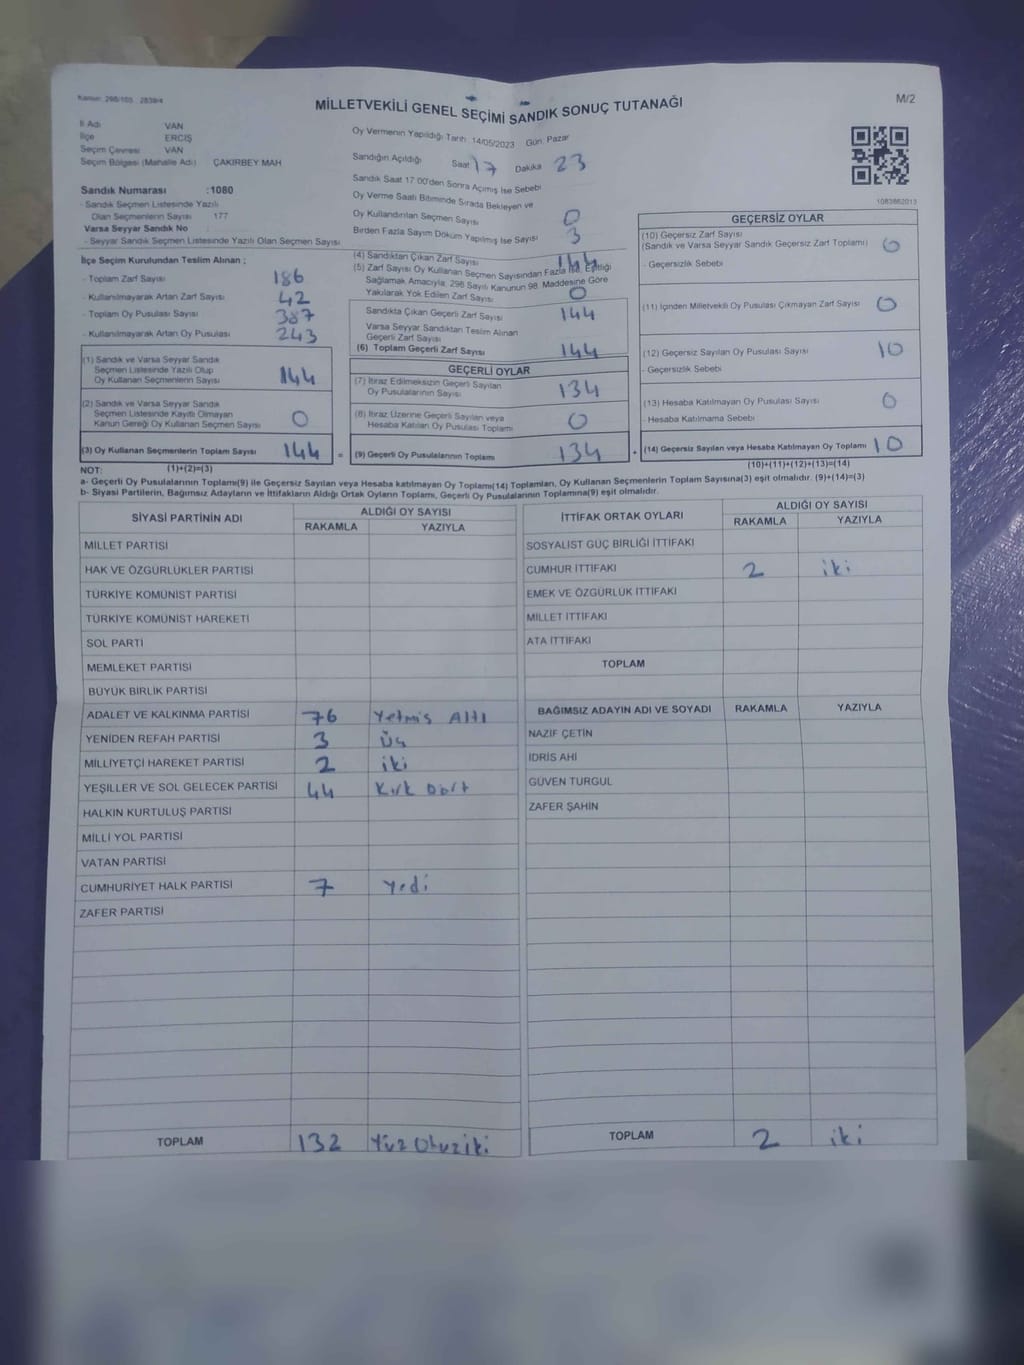 Kanun: 298/105 2839/4
MİLLETVEKİLİ GENEL SEÇİMİ SANDIK SONUÇ TUTANAĞI
M/2
İl Adı VAN
İlçe ERCİŞ
Seçim Çevresi VAN
Seçim Bölgesi (Mahalle Adı) ÇAKIRBEY MAH
Sandık Numarası :1080
- Sandık Seçmen Listesinde Yazılı
Olan Seçmenlerin Sayısı 177
Varsa Seyyar Sandık No
- Seyyar Sandık Seçmen Listesinde Yazılı Olan Seçmen Sayısı
Oy Vermenin Yapıldığı Tarih 14/05/2023 Gün Pazar
Sandığın Açıldığı Saat 17 Dakika 23
Sandık Saat 17:00'den Sonra Açılmış İse Sebebi
Oy Verme Saati Bitiminde Sırada Bekleyen ve
Oy Kullandırılan Seçmen Sayısı 0
Birden Fazla Sayım Döküm Yapılmış İse Sayısı 3
1083862013
İlçe Seçim Kurulundan Teslim Alınan ;
- Toplam Zarf Sayısı 186
- Kullanılmayarak Artan Zarf Sayısı 42
- Toplam Oy Pusulası Sayısı 387
- Kullanılmayarak Artan Oy Pusulası 243
(1) Sandık ve Varsa Seyyar Sandık
Seçmen Listesinde Yazılı Olup
Oy Kullanan Seçmenlerin Sayısı 144
(2) Sandık ve Varsa Seyyar Sandık
Seçmen Listesinde Kayıtlı Olmayan
Kanun Gereği Oy Kullanan Seçmen Sayısı 0
(3) Oy Kullanan Seçmenlerin Toplam Sayısı 144 =
(4) Sandıktan Çıkan Zarf Sayısı 144
(5) Zarf Sayısı Oy Kullanan Seçmen Sayısından Fazla İse, Eşitliği
Sağlamak Amacıyla, 298 Sayılı Kanunun 98. Maddesine Göre
Yakılarak Yok Edilen Zarf Sayısı 0
Sandıkta Çıkan Geçerli Zarf Sayısı 144
Varsa Seyyar Sandıktan Teslim Alınan
Geçerli Zarf Sayısı
(6) Toplam Geçerli Zarf Sayısı 144
GEÇERLİ OYLAR
(7) İtiraz Edilmeksizin Geçerli Sayılan
Oy Pusulalarının Sayısı 134
(8) İtiraz Üzerine Geçerli Sayılan veya
Hesaba Katılan Oy Pusulası Toplamı 0
(9) Geçerli Oy Pusulalarının Toplamı 134 +
GEÇERSİZ OYLAR
(10) Geçersiz Zarf Sayısı
(Sandık ve Varsa Seyyar Sandık Geçersiz Zarf Toplamı) 0
- Geçersizlik Sebebi
(11) İçinden Milletvekili Oy Pusulası Çıkmayan Zarf Sayısı 0
(12) Geçersiz Sayılan Oy Pusulası Sayısı 10
- Geçersizlik Sebebi
(13) Hesaba Katılmayan Oy Pusulası Sayısı 0
- Hesaba Katılmama Sebebi
(14) Geçersiz Sayılan veya Hesaba Katılmayan Oy Toplamı 10
NOT: (1)+(2)=(3)
(10)+(11)+(12)+(13)=(14)
a- Geçerli Oy Pusulalarının Toplamı(9) ile Geçersiz Sayılan veya Hesaba katılmayan Oy Toplamı(14) Toplamları, Oy Kullanan Seçmenlerin Toplam Sayısına(3) eşit olmalıdır. (9)+(14)=(3)
b- Siyasi Partilerin, Bağımsız Adayların ve İttifakların Aldığı Ortak Oyların Toplamı, Geçerli Oy Pusulalarının Toplamına(9) eşit olmalıdır.
SİYASİ PARTİNİN ADI ALDIĞI OY SAYISI
RAKAMLA YAZIYLA
MİLLET PARTİSİ
HAK VE ÖZGÜRLÜKLER PARTİSİ
TÜRKİYE KOMÜNİST PARTİSİ
TÜRKİYE KOMÜNİST HAREKETİ
SOL PARTİ
MEMLEKET PARTİSİ
BÜYÜK BİRLİK PARTİSİ
ADALET VE KALKINMA PARTİSİ 76 Yetmiş Altı
YENİDEN REFAH PARTİSİ 3 Üç
MİLLİYETÇİ HAREKET PARTİSİ 2 iki
YEŞİLLER VE SOL GELECEK PARTİSİ 44 Kırk Dört
HALKIN KURTULUŞ PARTİSİ
MİLLİ YOL PARTİSİ
VATAN PARTİSİ
CUMHURİYET HALK PARTİSİ 7 Yedi
ZAFER PARTİSİ
TOPLAM 132 Yüz Otuz iki
İTTİFAK ORTAK OYLARI ALDIĞI OY SAYISI
RAKAMLA YAZIYLA
SOSYALİST GÜÇ BİRLİĞİ İTTİFAKI
CUMHUR İTTİFAKI 2 iki
EMEK VE ÖZGÜRLÜK İTTİFAKI
MİLLET İTTİFAKI
ATA İTTİFAKI
TOPLAM
BAĞIMSIZ ADAYIN ADI VE SOYADI RAKAMLA YAZIYLA
NAZİF ÇETİN
İDRİS AHİ
GÜVEN TURGUL
ZAFER ŞAHİN
TOPLAM 2 iki